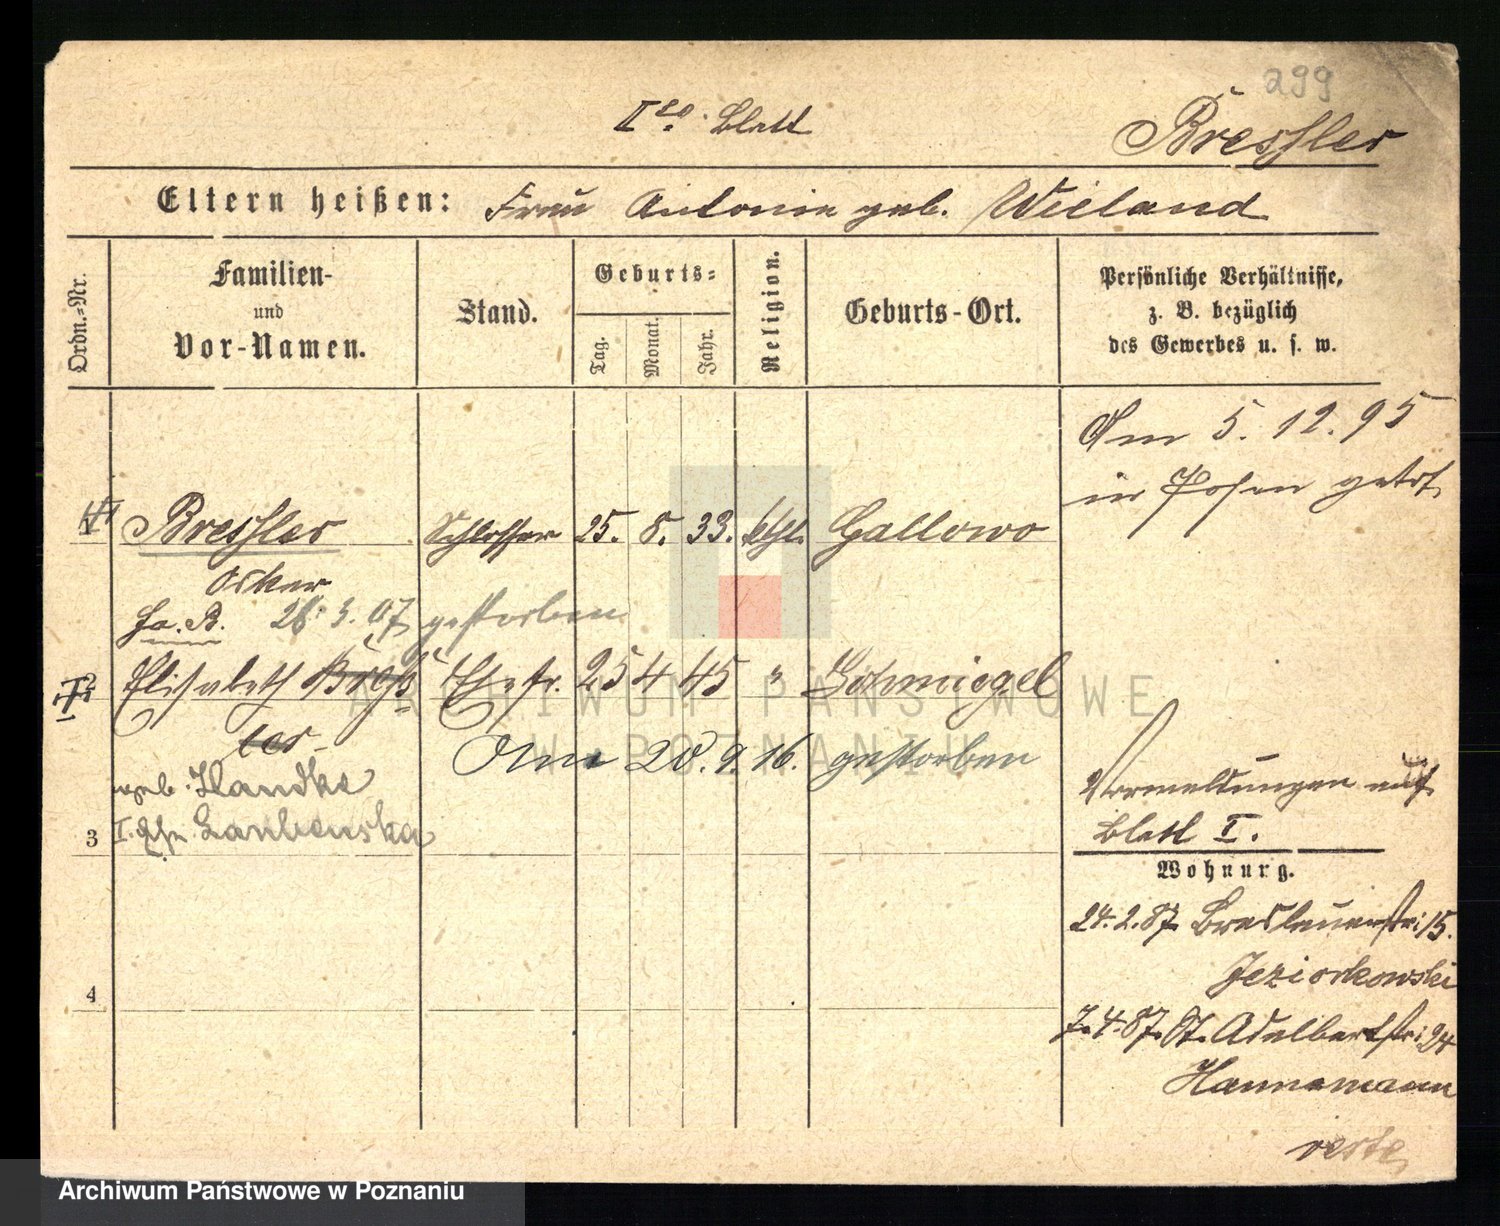 299
II Blatt
Bressler
Eltern heißen: Frau Antonie geb. Wieland
Ordn.-Nr.
Familien-
und
Vor-Namen.
Stand.
Geburts-
Tag.
Monat.
Jahr.
Religion.
Geburts-Ort.
Persönliche Verhältnisse,
z. B. bezüglich
des Gewerbes u. s. w.
Am 5. 12. 95
in Posen getrt
Bressler Schlosser 25. 8. 33. kthl. Gallowo
Oskar
26. 3. 07 gestorben
Elisabeth Bress Ehefr. 25 4 45 " Schmiegel
ler
Am 20. 9. 16. gestorben
geb. Handke
3
4
Vermeldungen auf
Blatt I.
Wohnung.
24. 2. 87 Breslauerstr: 15.
Jeziorkowski
7. 4. 87. St. Adalbertstr: 24
Hannemann
verte
ARCHIWUM PAŃSTWOWE
W POZNANIU
Archiwum Państwowe w Poznaniu